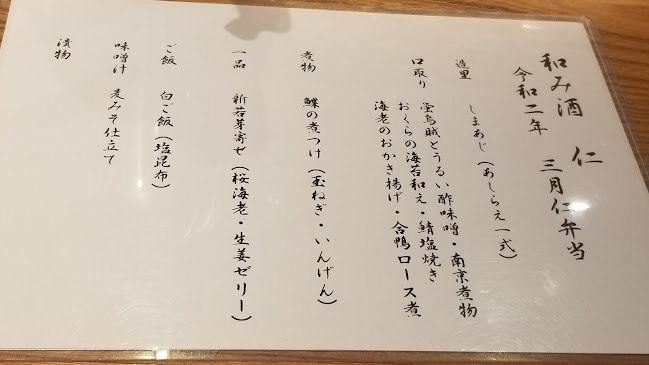 和み酒 仁
令和二年 三月仁弁当
造里 しまあじ(あしらえ一式)
口取り 蛍烏賊とうるい酢味噌・南京煮物
おくらの海苔和え・鯖塩焼き
海老のおかき揚げ・合鴨ロース煮
煮物 鰈の煮つけ(玉ねぎ・いんげん)
一品 新若芽寄せ(桜海老・生姜ゼリー)
ご飯 白ご飯(塩昆布)
味噌汁 麦みそ仕立て
漬物